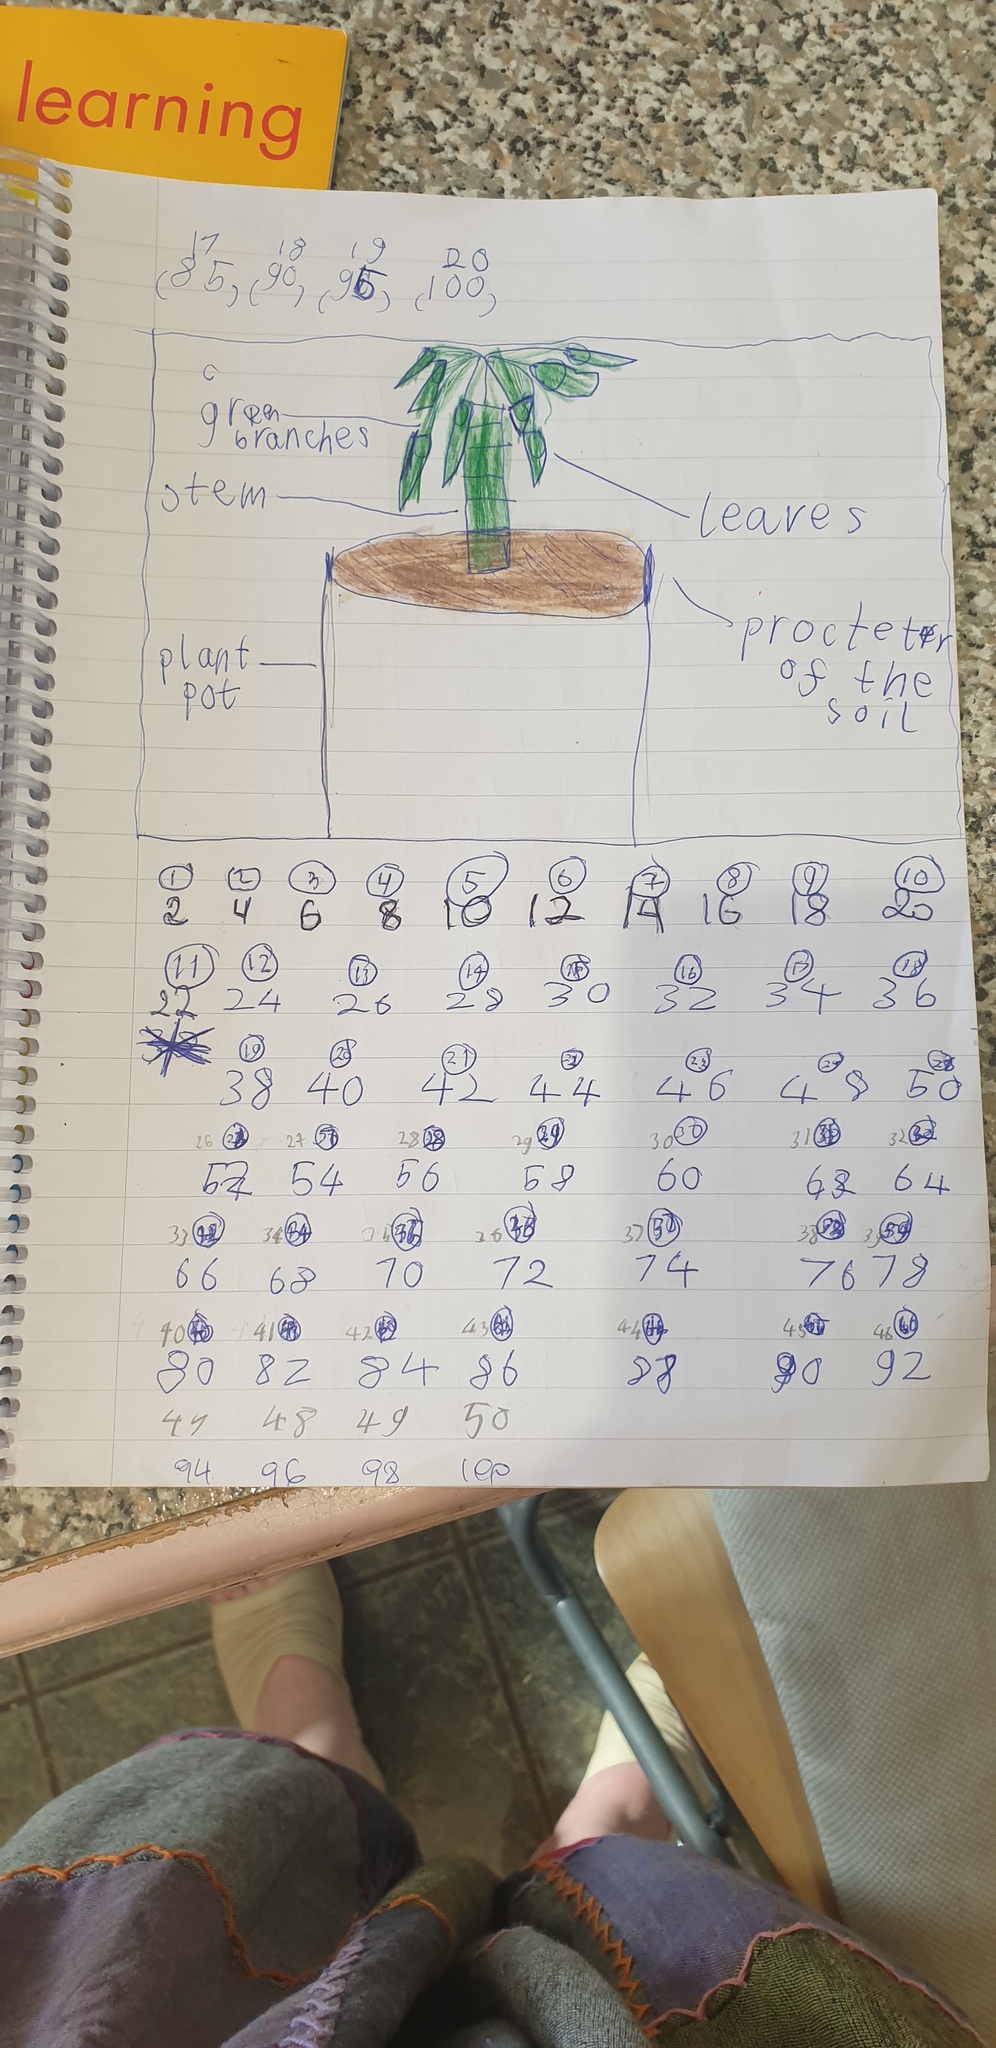 learning
17 18 19 20
(85, (90, (95, (100,
c
green
branches
stem
leaves
plant
pot
procteter
of the
soil
1 2 3 4 5 6 7 8 9 10
2 4 6 8 10 12 14 16 18 20
11 12 13 14 15 16 17 18
22 24 26 28 30 32 34 36
19 20 21 23
38 40 42 44 46 48 50
26 27 28 29 30 31 32
52 54 56 58 60 62 64
33 34 35 36 37 38 39
66 68 70 72 74 76 78
40 41 42 43 44 45 46
80 82 84 86 88 90 92
47 48 49 50
94 96 98 100